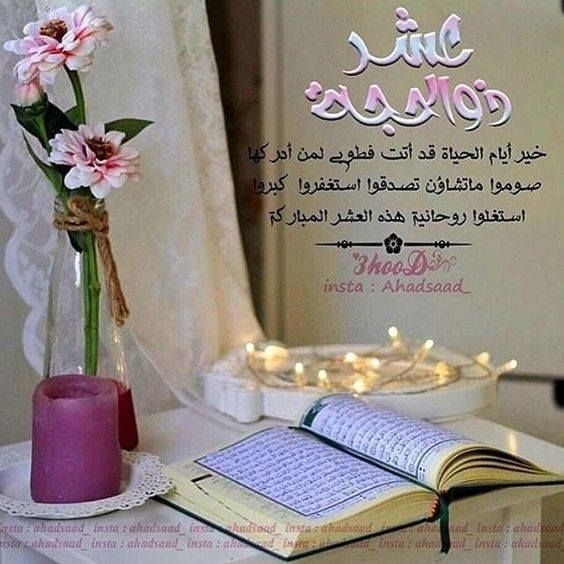 عشر
ذو الحجة
خير أيام الحياة قد أتت فطوبى لمن أدركها
صوموا ماتشاؤن تصدقوا استغفروا كبروا
استغلوا روحانية هذه العشر المباركة
3hooD
insta : Ahadsaad_
insta : ahadsaad_ insta : ahadsaad_ insta : ahadsaad_ insta : ahadsaad_ insta : ahadsaad_
insta : ahadsaad_ insta : ahadsaad_ insta : ahadsaad_ insta : ahadsaad_ insta : ahadsaad_